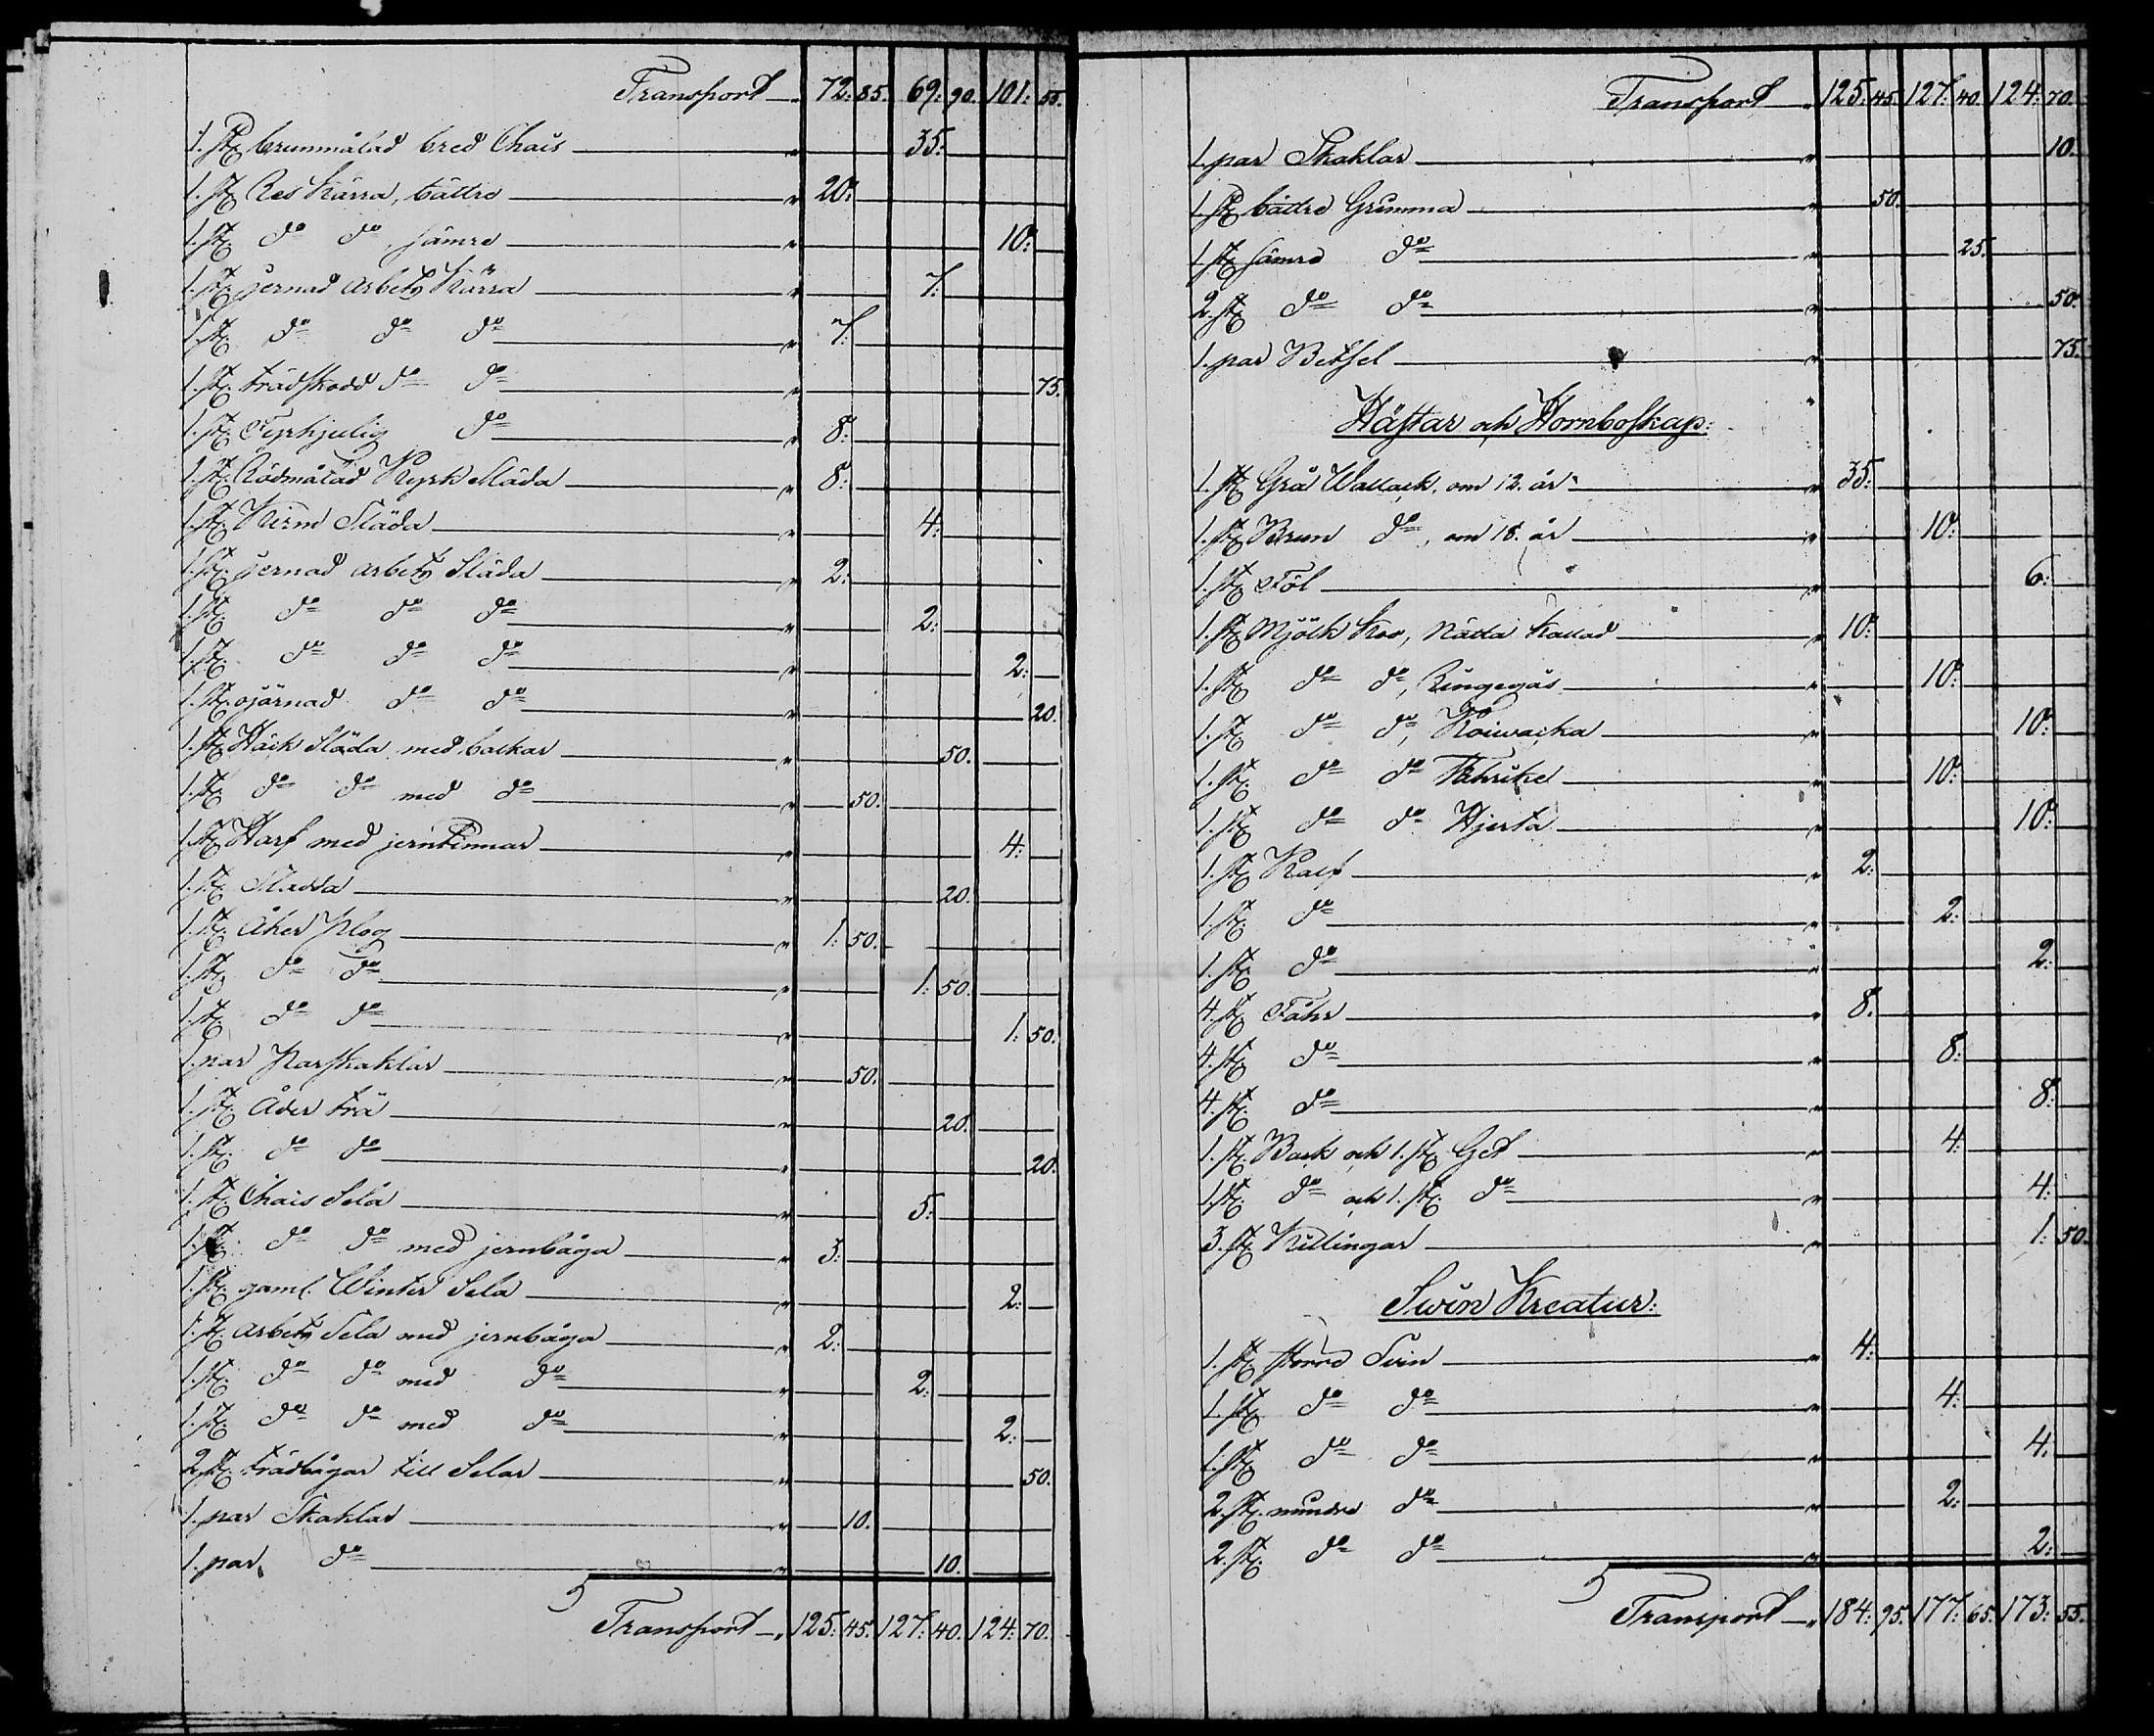 Transport 72: 85. 69: 90. 101: 55.
1. st brunmålad bred Chais 35:
1. st Res Kärra, bättre 20:
1. st do do, sämre 10:
1. st jernad arbets Kärra 7:
1. st do do do 7:
1. st trädskodd do do 75.
1. st Fyrhjulig do 8:
1. st Rödmålad Kyrk Släda 8:
1. st Kirm Släda 4:
1. st jernad arbets Släda 2:
1. st do do do 2:
1. st do do do 2:
1. st ojärnad do do 20.
1. st Häck Släda med backar 50.
1. st do do med do 50.
1. st Harf med jernpinnar 4:
1. st Sladda 20.
1. st Åker Plog 1: 50.
1. st do do 1: 50.
1. st do do 1: 50.
1. par Parskaklar 50.
1. st Åder trä 20.
1. st do do 20.
1. st Chais Sela 5:
1. st do do med jernbåga 3:
1. st gaml. Winter Sela 2:
1. st arbets Sela med jernbåga 2:
1. st do do med do 2:
1. st do do med do 2:
2. st trädbågar till Selar 50.
1. par Skaklar 10.
1. par do 10.
Transport 125: 45. 127: 40. 124: 70.
Transport 125: 45. 127: 40. 124: 70.
1. par Skaklar 10.
1. st bättre Grimma 50.
1. st sämre do 25.
2. st do do 50.
1. par Betsel 75.
Hästar och Hornboskap:
1. st Grå Wallack, om 12. år 35:
1. st Brun do, om 18. år 10:
1. st Föl 6:
1. st Mjölk Koo, Nätta Kallad 10:
1. st do do, Ringegås 10:
1. st do do, Koiwacka 10:
1. st do do 10:
1. st do do Hjerta 10:
1. st Kalf 2:
1. st do 2:
1. st do 2:
4. st Fåhr 8.
4. st do 8:
4. st do 8:
1. st Bock och 1. st Get 4:
1. st do och 1. st do 4:
3. st Killingar 1: 50.
Swin Kreatur:
1. st större Svin 4:
1. st do do 4:
1. st do do 4.
2. st mindre do 2:
2. st do do 2:
Transport 184: 95. 177: 65. 173: 55.